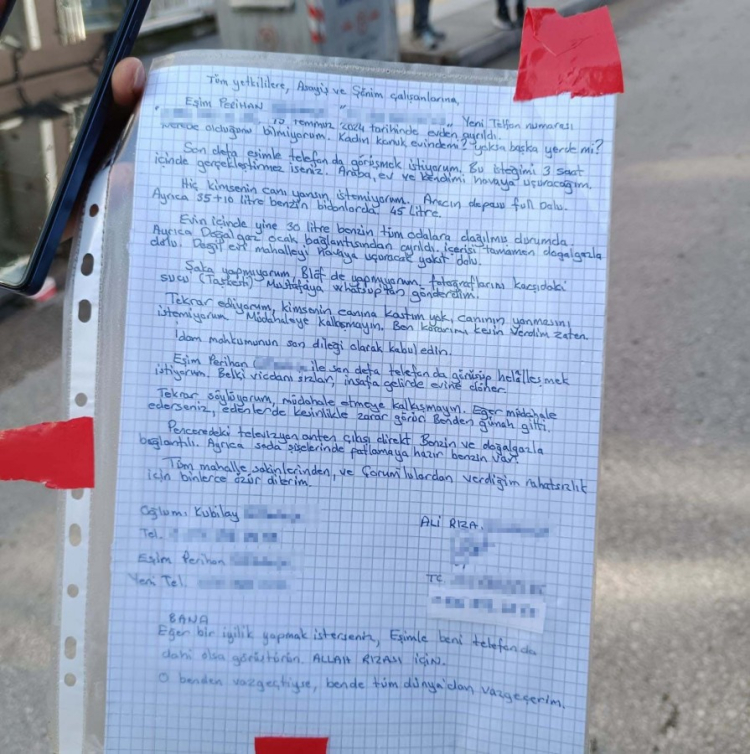 Tüm yetkililere, Asayiş ve Şönim çalışanlarına,
Eşim PERİHAN
Yeni Telfon numarası
10 Temmuz 2024 tarihinde evden ayrıldı.
nerede olduğunu bilmiyorum. Kadın konuk evindemi? Yoksa başka yerde mi?
Son defa eşimle telefonda görüşmek istiyorum. Bu isteğimi 3 saat
içinde gerçekleştirmez iseniz. Araba, ev ve kendimi havaya uçuracağım.
Hiç kimsenin canı yansın istemiyorum. Aracın deposu full Dolu.
Ayrıca 35+10 litre benzin bidonlarda. 45 Litre.
Evin içinde yine 30 litre benzin tüm odalara dağılmış durumda.
Ayrıca Doğalgaz ocak bağlantısından ayrıldı. içerisi tamamen doğalgazla
dolu. Değil evi mahalleyi havaya uçuracak yakıt dolu.
Şaka yapmıyorum, Blöf de yapmıyorum, fotoğraflarını karşıdaki
sucu (Taşkesti) Mustafaya whatsuptan gönderdim.
Tekrar ediyorum, kimsenin canına kastım yok, canının yanmasını
istemiyorum Müdahaleye kalkışmayın. Ben kararımı kesin verdim zaten.
İdam mahkumunun son dileği olarak kabul edin.
Eşim Perihan ile son defa telefonda görüşüp helâlleşmek
istiyorum. Belki vicdanı sızlar, insafa gelinde evine döner.
Tekrar söylüyorum, müdahale etmeye kalkışmayın. Eğer müdahale
ederseniz, edenlerde kesinlikle zarar görür. Benden günah gitti.
Penceredeki televizyon anten çıkışı direkt Benzin ve doğalgazla
bağlantılı. Ayrıca soda şişelerinde patlamaya hazır benzin var.
Tüm mahalle sakinlerinden, ve Çorumlulardan verdiğim rahatsızlık
için binlerce özür dilerim.
Oğlum: Kubilay
ALİ RIZA.
Tel.
Eşim Perihan
Yeni Tel.
TC
BANA
Eğer bir iyilik yapmak isterseniz, Eşimle beni telefonda
dahi olsa görüştürün. ALLAH RIZASI İÇİN.
O benden vazgeçtiyse, bende tüm dünya'dan vazgeçerim.